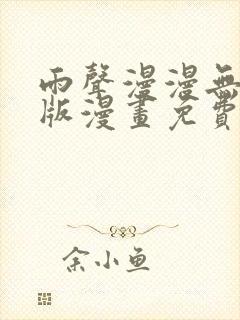 雨聲漫漫無
版漫畫免費
余小鱼